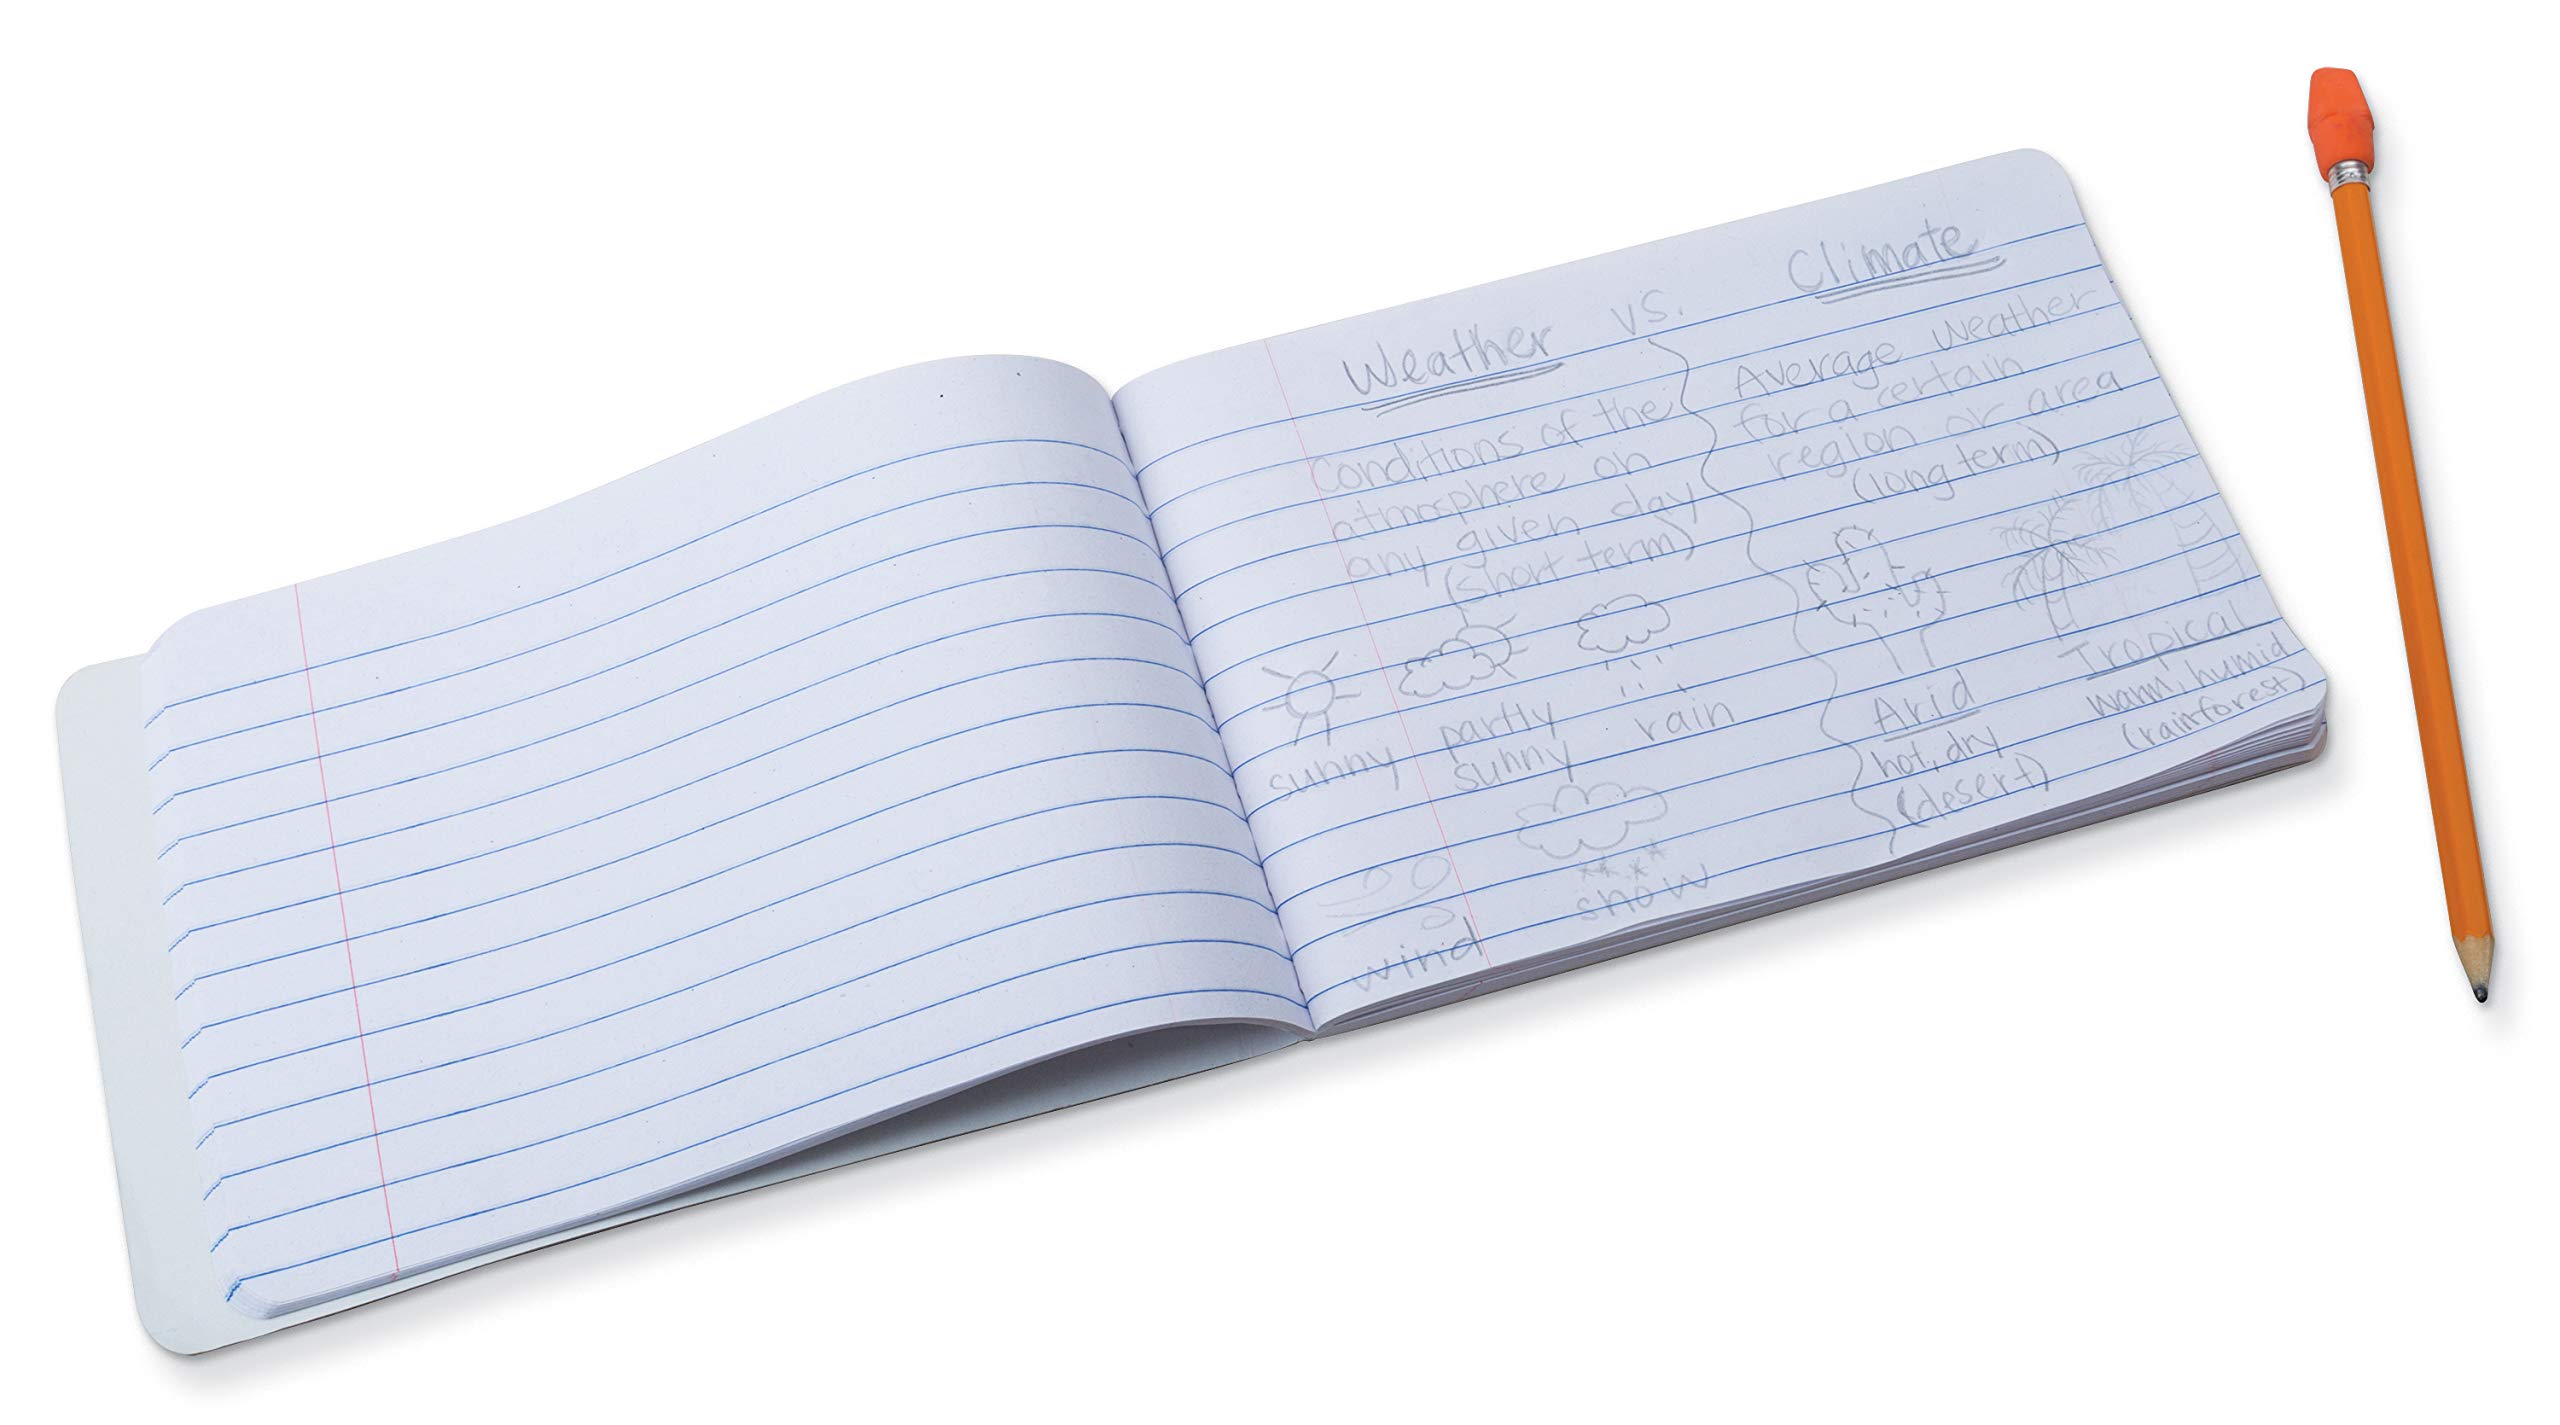 Weather vs. Climate
Conditions of the
atmosphere on
any given day
(short term)
sunny
partly
sunny
rain
wind
snow
Average weather
for a certain
region or area
(long term)
Arid
hot, dry
(desert)
Tropical
warm, humid
(rainforest)